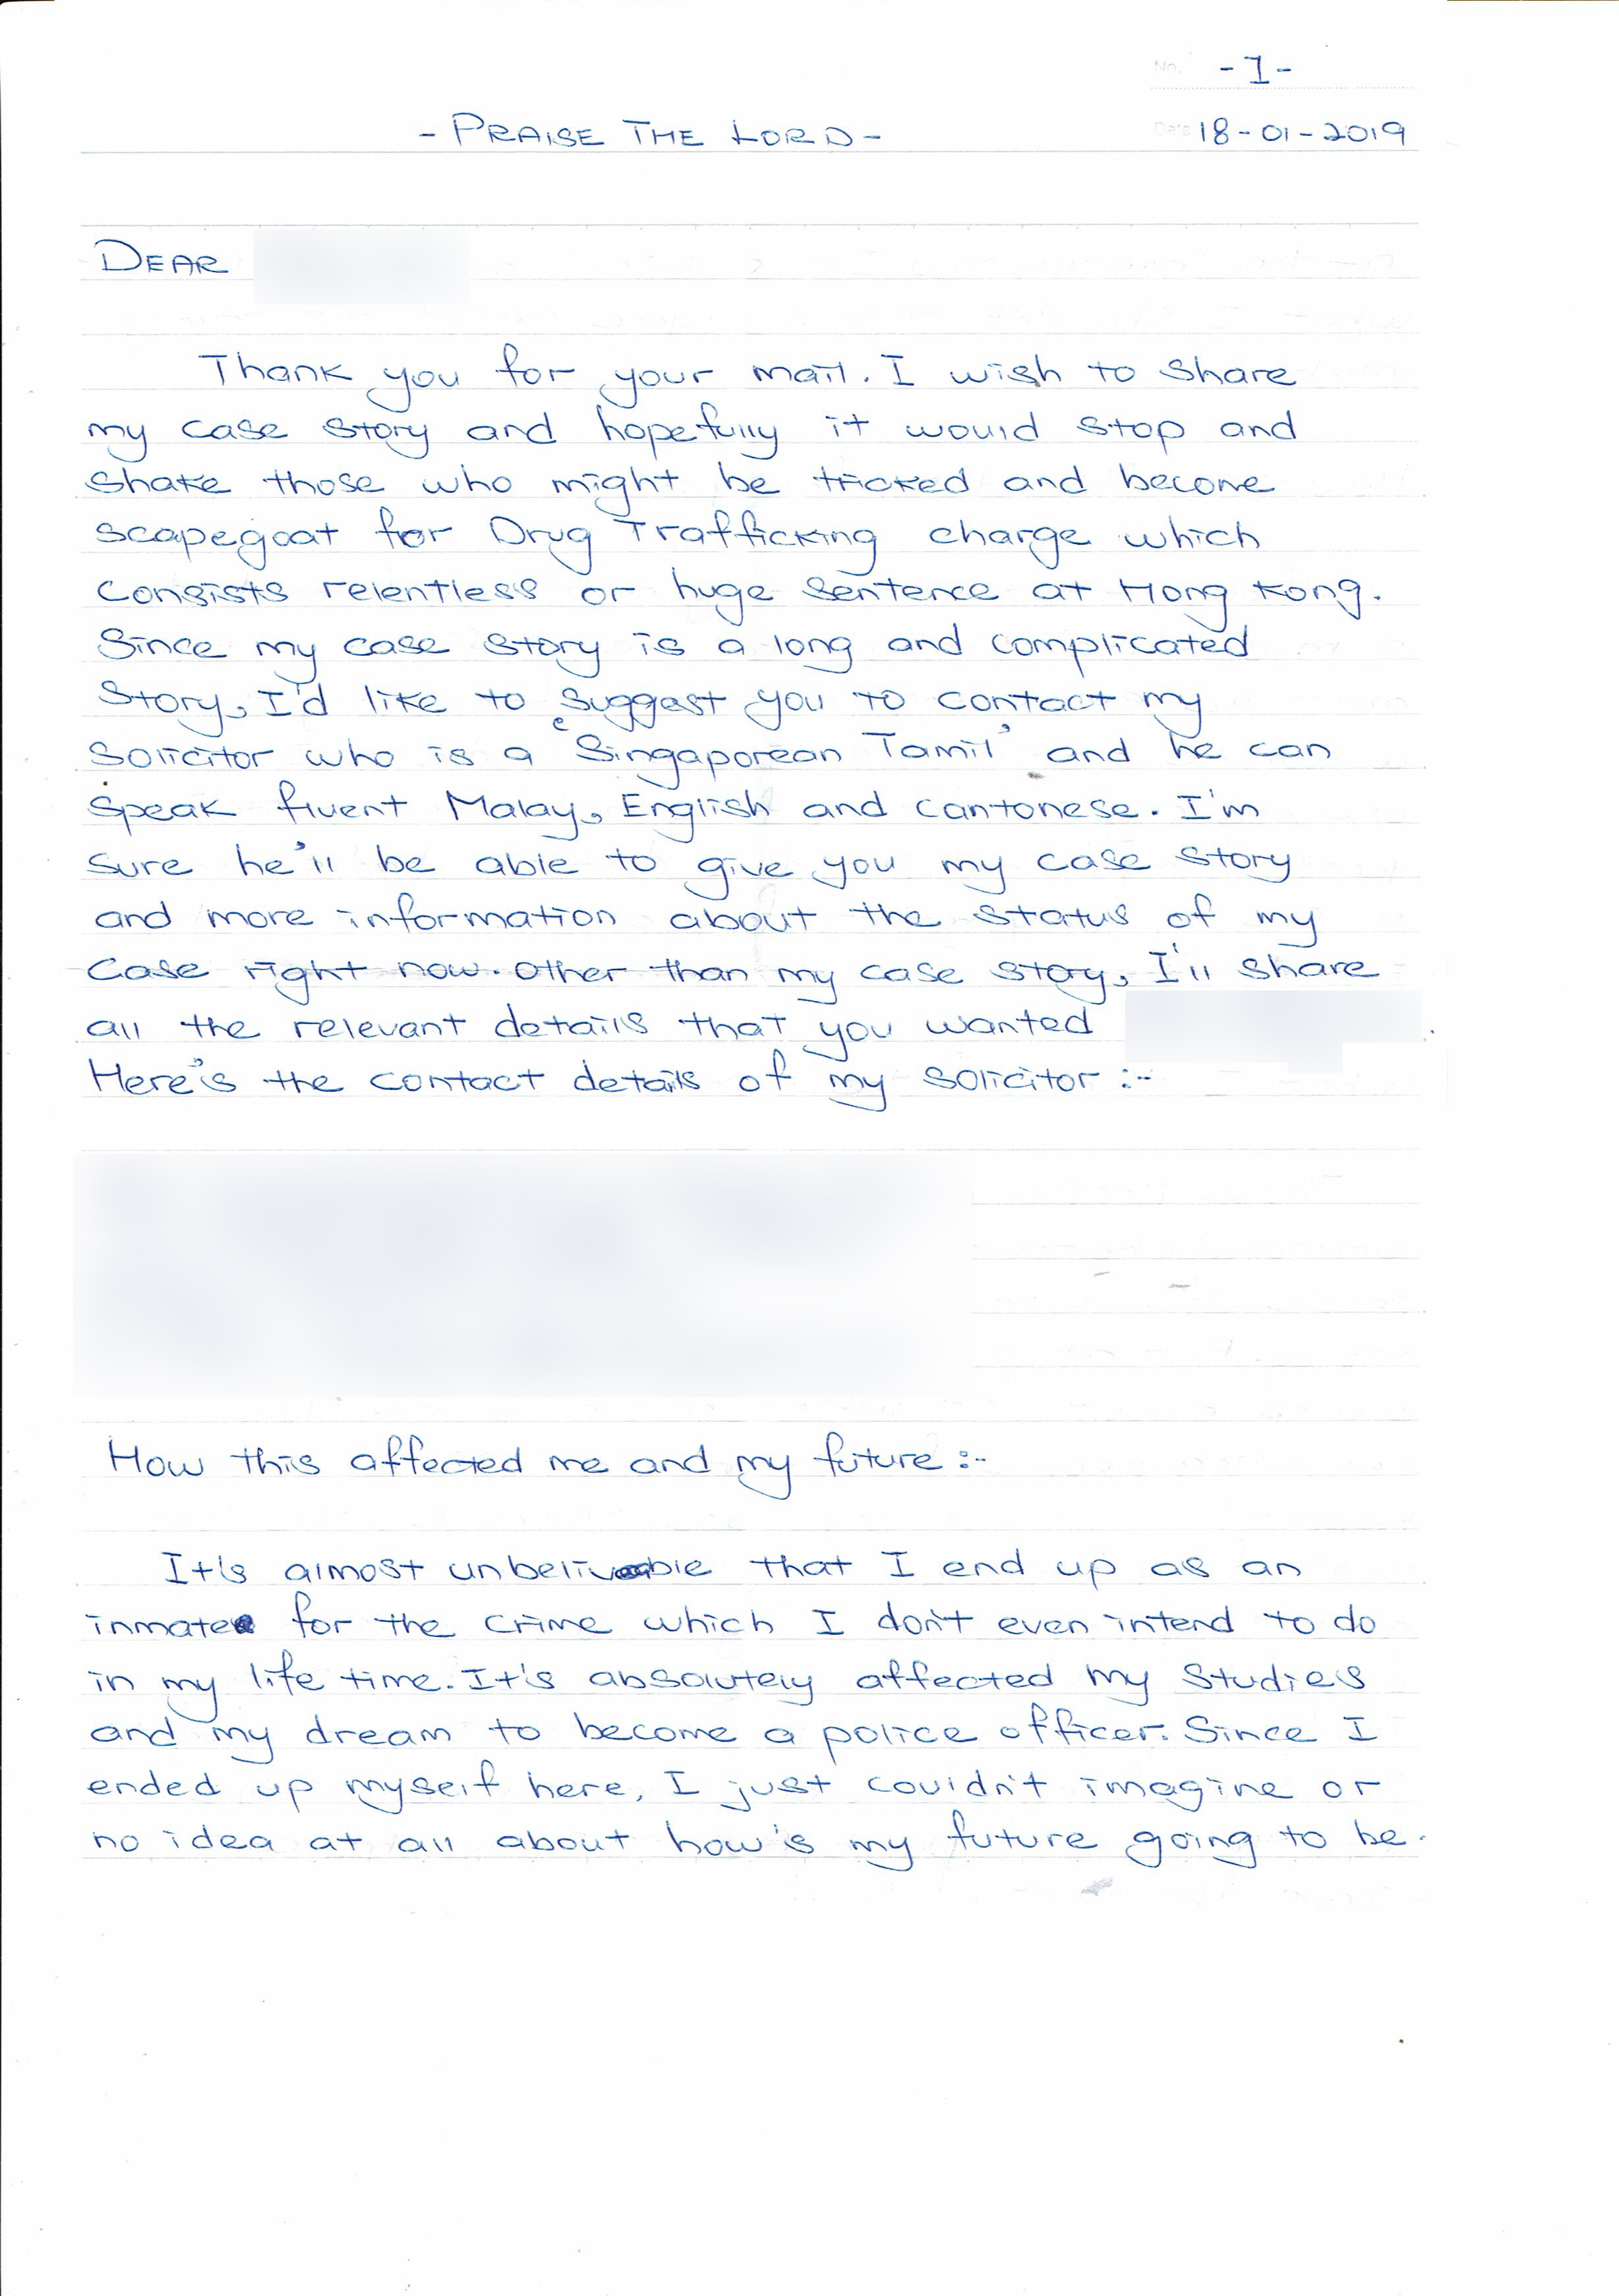 No. -1-
- PRAISE THE LORD -
Date 18-01-2019
DEAR
Thank you for your mail. I wish to share
my case story and hopefully it would stop and
shake those who might be tricked and become
scapegoat for Drug Trafficking charge which
consists relentless or huge sentence at Hong Kong.
Since my case story is a long and complicated
story, I'd like to suggest you to contact my
solicitor who is a 'Singaporean Tamil' and he can
speak fluent Malay, English and cantonese. I'm
sure he'll be able to give you my case story
and more information about the status of my
case right now. Other than my case story, I'll share
all the relevant details that you wanted
Here's the contact details of my solicitor :-
How this affected me and my future :-
It's almost unbelivable that I end up as an
inmate for the crime which I don't even intend to do
in my life time. It's absolutely affected my studies
and my dream to become a police officer. Since I
ended up myself here, I just couldn't imagine or
no idea at all about how's my future going to be.